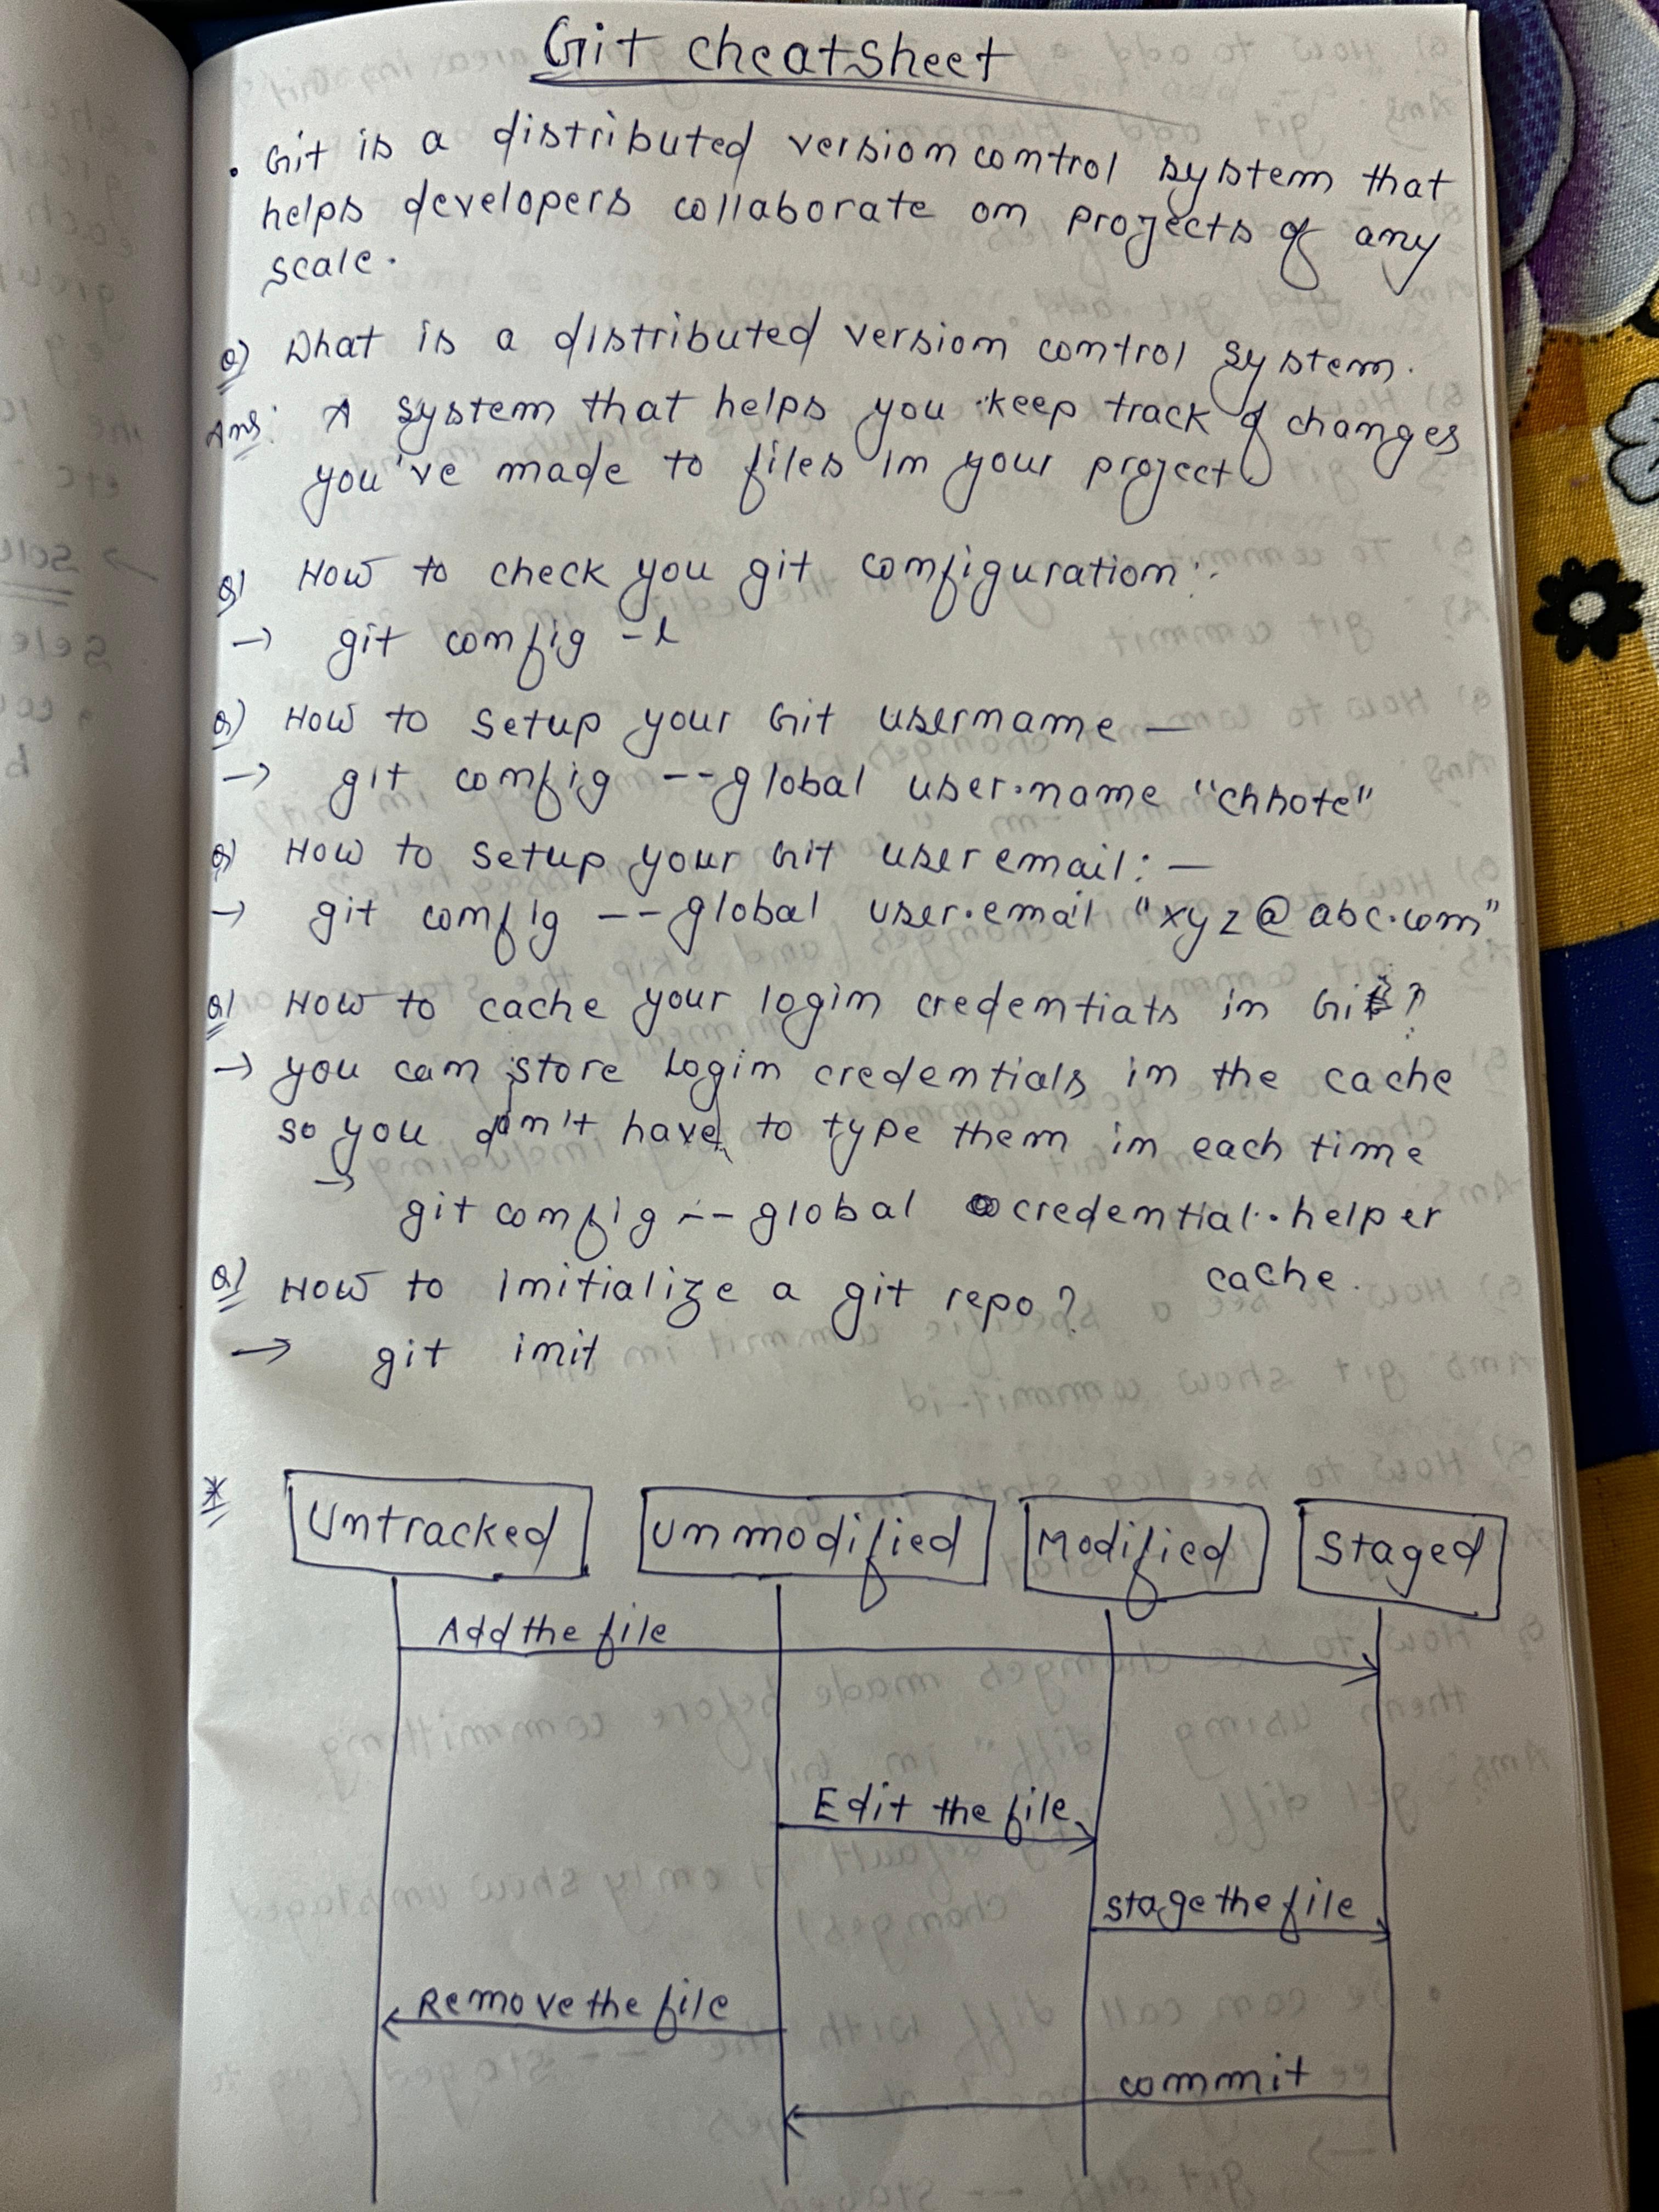 Git cheatsheet
• Git is a distributed version control system that
helps developers collaborate on projects of any
scale.
Q) What is a distributed version control system.
Ans: A system that helps you keep track of changes
you've made to files in your project.
Q) How to check you git configuration:
→ git config -l
Q) How to setup your Git username —
→ git config --global user.name "chhote"
Q) How to setup your Git user email: —
→ git config --global user.email "xyz@abc.com"
Q) How to cache your login credentials in Git?
→ you can store login credentials in the cache
so you don't have to type them in each time
→
git config --global credential.helper
cache.
Q) How to initialize a git repo?
→ git init
* Untracked Unmodified Modified Staged
Add the file
Edit the file
stage the file
Remove the file
commit